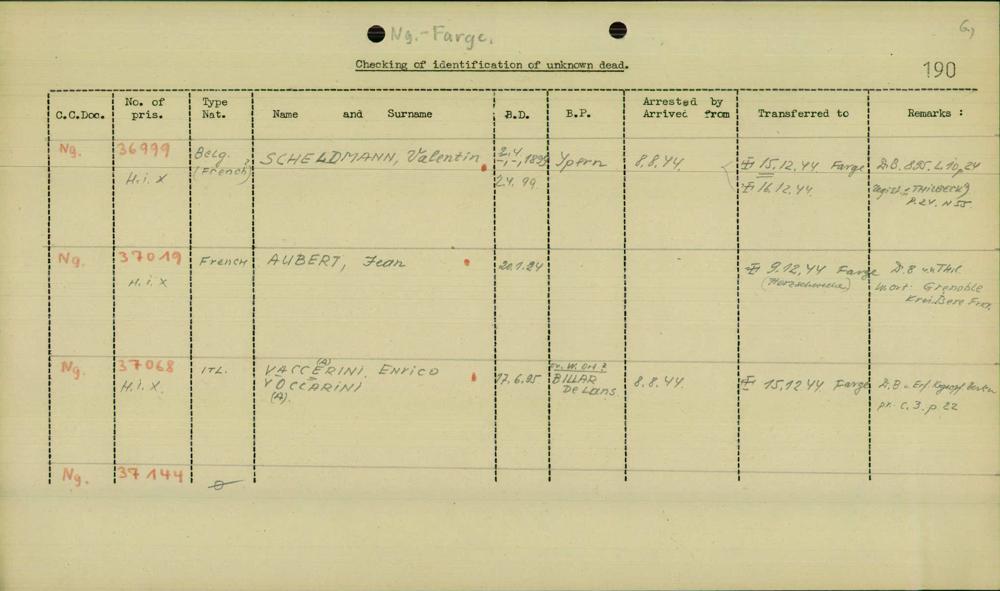 Ng.-Farge.
Checking of identification of unknown dead.
190
C.C.Doc. No. of pris. Type Nat. Name and Surname B.D. B.P. Arrested by Arrived from Transferred to Remarks :
Ng. 36999 Belg. SCHELDMANN, Valentin Ypern 8.8.44. 15.12.44 Farge D.B. 895. L.10p24
H.i.X (French)? 2.4.99 16.12.44
THILBECK
P.24. N 55.
Ng. 37019 French AUBERT, Jean 20.1.24 9.12.44 Farge D.B
H.i.X mort. Grenoble
Ng. 37068 ITL. VACCERINI, Enrico 17.6.95 BILLAR 8.8.44. 15.12.44 Farge D.B
(A)
H.i.X. VOCCARINI De Lans. pr. C.3.p.22
(A).
Ng. 37144